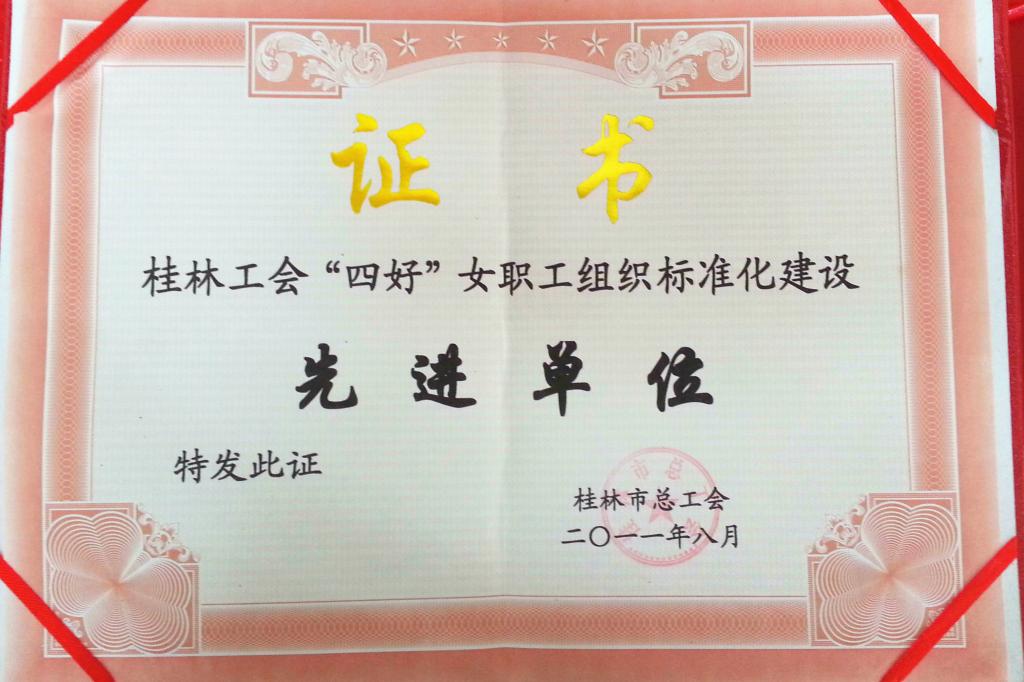 证书
桂林工会“四好”女职工组织标准化建设
先进单位
特发此证
桂林市总工会
二〇一一年八月